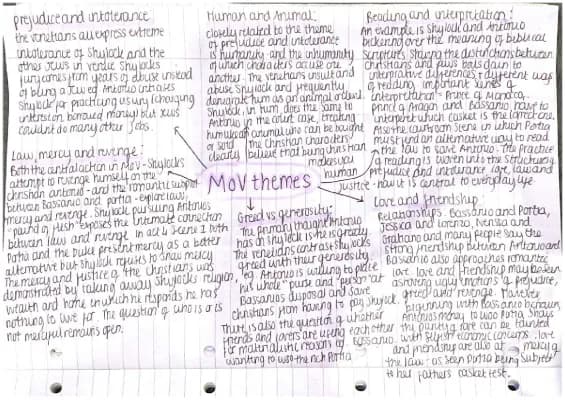 prejudice and intolerance:
the venetians all express extreme
intolerance of Shylock and the
other Jews in Venice Shylocks
fury comes from years of abuse instead
of being a Jew. Antonio
Shylock for practicing usury (charging
interest on borrowed money) but Jews
couldn't do many other jobs.
Human and Animal:
closely related to the theme
of prejudice and intolerance
is humanity and the inhumanity
of which characters accuse one
another. The venetians insult and
abuse Shylock and frequently
denigrate him as an animal or devil.
Shylock, in turn does the same to
Antonio in the court case, treating
human as animal who can be bought
or sold
The Christian characters
clearly believe that being Christian
makes you
human
Reading and interpretation:
An example is Shylock and Antonio
bickering over the meaning of biblical
scriptures. Staging the distinctions between
christians and Jews boils down to
interpretative differences + different ways
of reading. important scenes of
interpretation - Prince of Morocco,
prince of Aragon and Bassanio, have to
interpret which casket is the correct one.
Also the courtroom scene in which Portia
must find an alternative way to read
the law to save Antonio. The practice
of reading is woven into the structure of
prejudice and intolerance, love, law and
justice - how it is central to everyday life
Law, mercy and revenge:
Both the central action in MoV - Shylocks
attempt to revenge himself on the
Christian Antonio - and the romantic subplot
between Bassanio and portia - explore law,
mercy and revenge. Shylock pursuing Antonios
"pound of flesh" exposes the intimate connection
between law and revenge. in act 4 scene 1 both
Portia and the Duke present mercy as a better
alternative but Shylock refuses to show mercy
The mercy and justice of the Christians was
demonstrated by taking away Shylocks religion,
wealth and home in which he responds he has
nothing to live for. The question of who is or is
not merciful remains open.
MoV themes
Greed vs generosity:
The primary thought Antonio
has on Shylock is he is greedy.
The venetians contrast Shylocks
greed with their generosity,
eg, Antonio is willing to place
his whole "purse" and "person" at
Bassanios disposal and save
christians from having to pay Shylock
There is also the question of whether
friends and lovers are using each other
for materialist reasons eg Bassanio
wanting to woo the rich Portia
Love and friendship:
Relationships: Bassanio and Portia,
Jessica and Lorenzo, Nerissa and
Gratiano and many people say the
strong friendship between Antonio and
Bassanio also approaches romantic
love. love and friendship may be seen
as solving ugly emotions of prejudice,
greed and revenge. However
beginning with Bassanio borrowing
Antonios money to woo Portia, shows
the purity of love can be tainted
with selfish economic concerns. love
and friendship are also at mercy of
the law. as seen Portia being subject
to her fathers casket test.